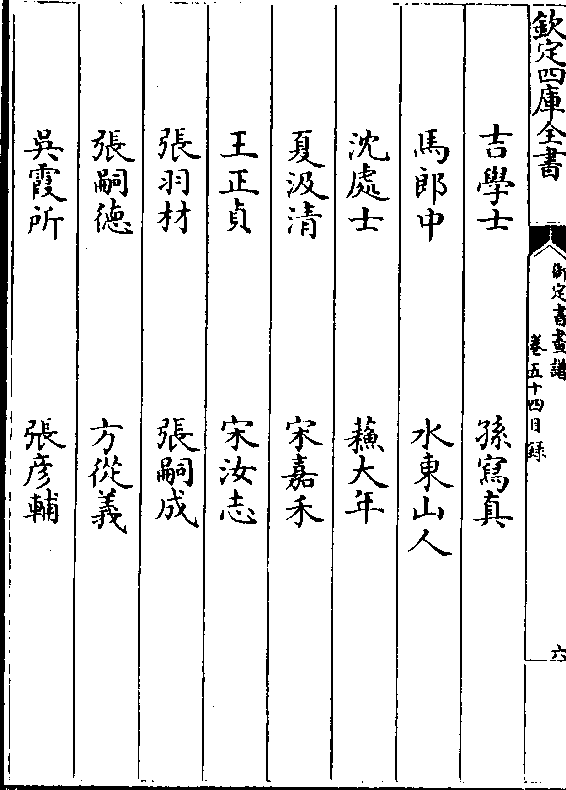 欽定四庫全書
御定書畫譜
卷五十四目錄
六
吉學士 孫寫真
馬郎中 水東山人
沈處士 蘓大年
夏汲清 宋嘉禾
王正貞 宋汝志
張羽材 張嗣成
張嗣德 方從義
吳霞所 張彦輔